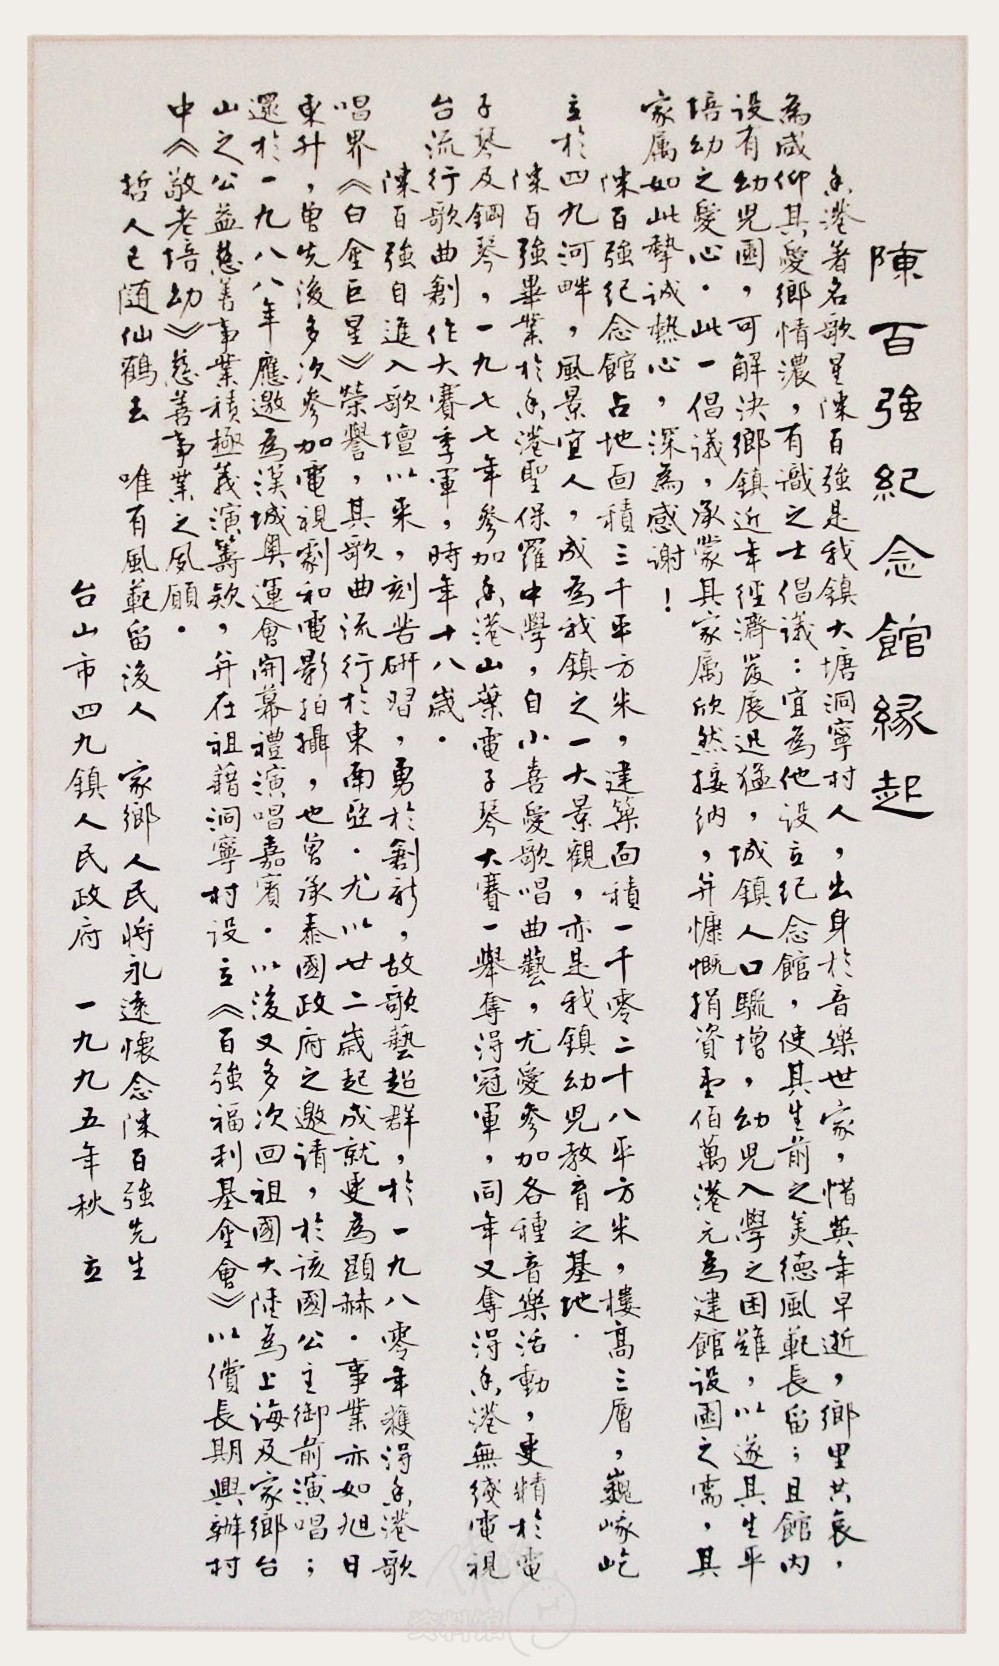 陳百強紀念館緣起
香港著名歌星陳百強是我鎮大塘洞寧村人，出身於音樂世家，惜英年早逝，鄉里共哀，
為感仰其愛鄉情濃，有識之士倡議：宜為他設立紀念館，使其生前之美德風範長留；且館內
设有幼児園，可解決鄉鎮近年經濟發展迅猛，城鎮人口驟增，幼児入學之困難，以遂其生平
培幼之愛心．此一倡議，承蒙其家属欣然接納，并慷慨捐資壹佰萬港元為建館設園之需，其
家属如此摯诚熱心，深為感谢！
陳百強纪念館占地面積三千平方米，建築面積一千零二十八平方米，樓高三層，巍峨屹
立於四九河畔，風景宜人，成為我鎮之一大景觀，亦是我鎮幼児教育之基地．
陳百強畢業於香港聖保羅中學，自小喜愛歌唱曲藝，尤愛參加各種音樂活動，更精於電
子琴及鋼琴，一九七七年參加香港山葉電子琴大賽一舉奪得冠軍，同年又奪得香港無綫電視
台流行歌曲創作大賽季軍，時年十八歲．
陳百強自進入歌壇以来，刻苦研習，勇於創新，故歌藝超群，於一九八零年獲得香港歌
唱界《白金巨星》榮譽，其歌曲流行於東南亞．尤以廿二歲起成就更為顕赫．事業亦如旭日
東升，曾先後多次參加電視劇和電影拍攝，也曾承泰國政府之邀請，於该國公主御前演唱；
還於一九八八年應邀為漢城奧運會開幕禮演唱嘉賓．以後又多次回祖國大陸為上海及家鄉台
山之公益慈善事業積極義演籌款，并在祖籍洞寧村设立《百強福利基金會》以償長期興辦村
中《敬老培幼》慈善事業之夙願．
哲人已随仙鶴去　唯有風範留後人　家鄉人民將永遠懷念陳百強先生
台山市四九鎮人民政府　一九九五年秋　立
资料馆